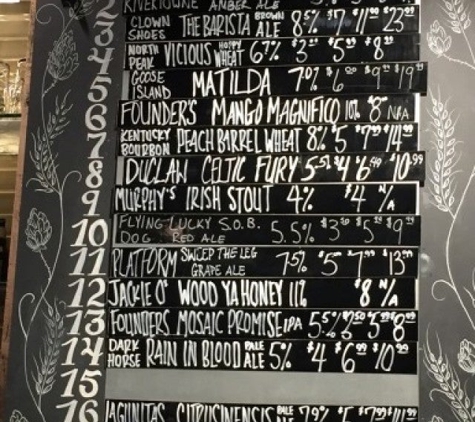 RIVERTOWNE AMBER ALE
2
CLOWN SHOES THE BARISTA BROWN ALE 8% $7 $11.00 $23.00
3
NORTH PEAK VICIOUS HOPPY WHEAT 6.7% $3 $5 $8
4
GOOSE ISLAND MATILDA 7% $6 $9 $19
5
FOUNDER'S MANGO MAGNIFICO 10% $8 N/A
6
KENTUCKY BOURBON PEACH BARREL WHEAT 8% $5 $7 $14
7
DUCLAW CELTIC FURY 5.5% $4 $6 $10
8
MURPHY'S IRISH STOUT 4% $4 N/A
9
FLYING DOG LUCKY S.O.B. RED ALE 5.5% $3 $5 $9
10
PLATFORM SWEEP THE LEG GRAPE ALE 7.5% $5 $7 $13
11
JACKIE O'S WOOD YA HONEY 11% $8 N/A
12
FOUNDERS MOSAIC PROMISE IPA 5.5% $2.50 $5 $8
13
DARK HORSE RAIN IN BLOOD PALE ALE 5% $4 $6 $10
14
15
LAGUNITAS CITRUSINENSIS PALE ALE 7.9% $5
16